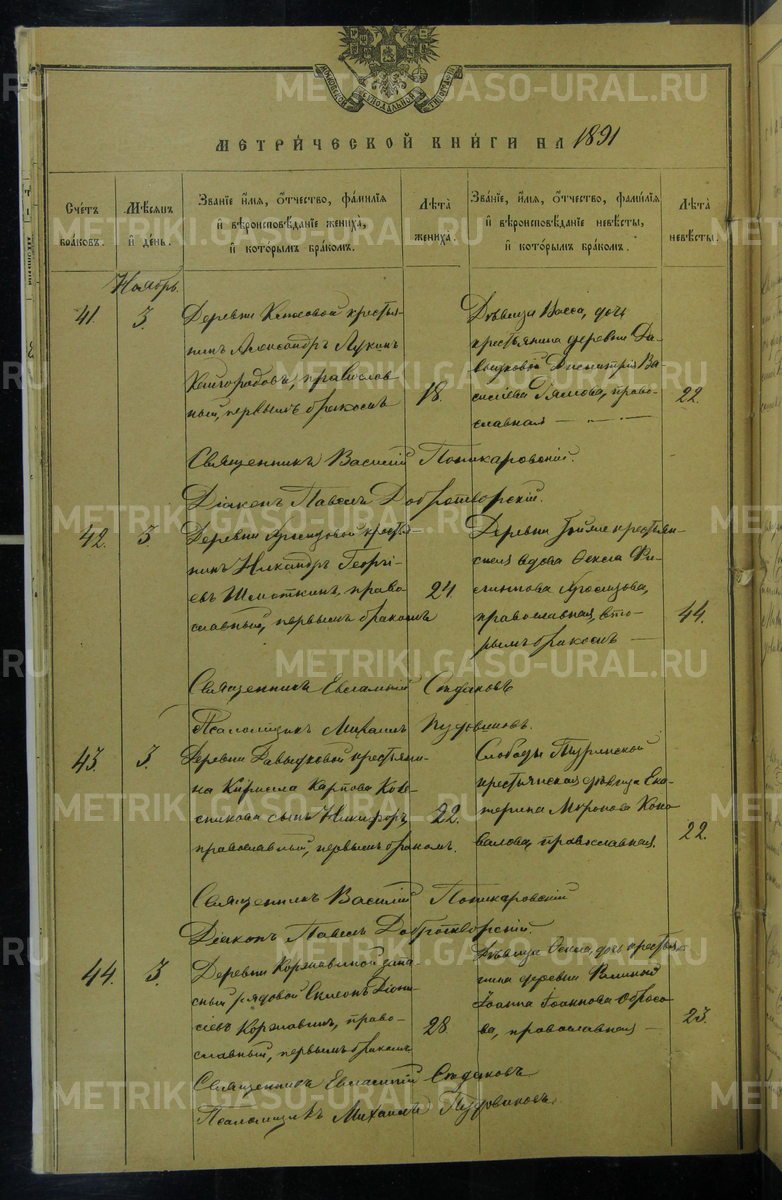 МЕТРИЧЕСКОЙ КНИГИ НА 1891
Счетъ браковъ.
Мѣсяцъ и день.
Званіе, имя, отчество, фамилія и вѣроисповѣданіе жениха, и которымъ бракомъ.
Лѣта жениха.
Званіе, имя, отчество, фамилія и вѣроисповѣданіе невѣсты, и которымъ бракомъ.
Лѣта невѣсты.
Ноябрь
41. 3.
Деревни крестья-
нинъ Александръ Лукинъ
Кайгородовъ, православ-
ный, первымъ бракомъ
18.
Дѣвица Васса, дочь
крестьянина деревни Да-
выдковой Димитрія Ва-
сильева православная
22.
Священникъ Василій Поникаровскій.
Діаконъ Павелъ Добротворскій.
42. 3.
Деревни крестья-
нинъ Никандръ Георгі-
евъ право-
славный, первымъ бракомъ
24.
Деревни крестьян-
ская вдова Фекла Фи-
православная, вто-
рымъ бракомъ
44.
Священникъ Евлампій Сѣдаковъ
Псаломщикъ Михаилъ Пудовиковъ.
43. 3.
Деревни Давыдковой крестьяни-
на Кирилла Карпова
сынъ Никифоръ,
православный, первымъ бракомъ.
22.
Слободы Туринской
крестьянская дѣвица Ека-
терина Миронова Коно-
валова, православная
22.
Священникъ Василій Поникаровскій
Діаконъ Павелъ Добротворскій
44. 3.
Деревни Коржавиной запа-
сный рядовой Симеонъ Діони-
сіевъ Коржавинъ, право-
славный, первымъ бракомъ
28.
Дѣвица Фекла, дочь крестья-
нина деревни
Іоанна Іоаннова
православная
23.
Священникъ Евлампій Сѣдаковъ
Псаломщикъ Михаилъ Пудовиковъ
METRIKI.GASO-URAL.RU